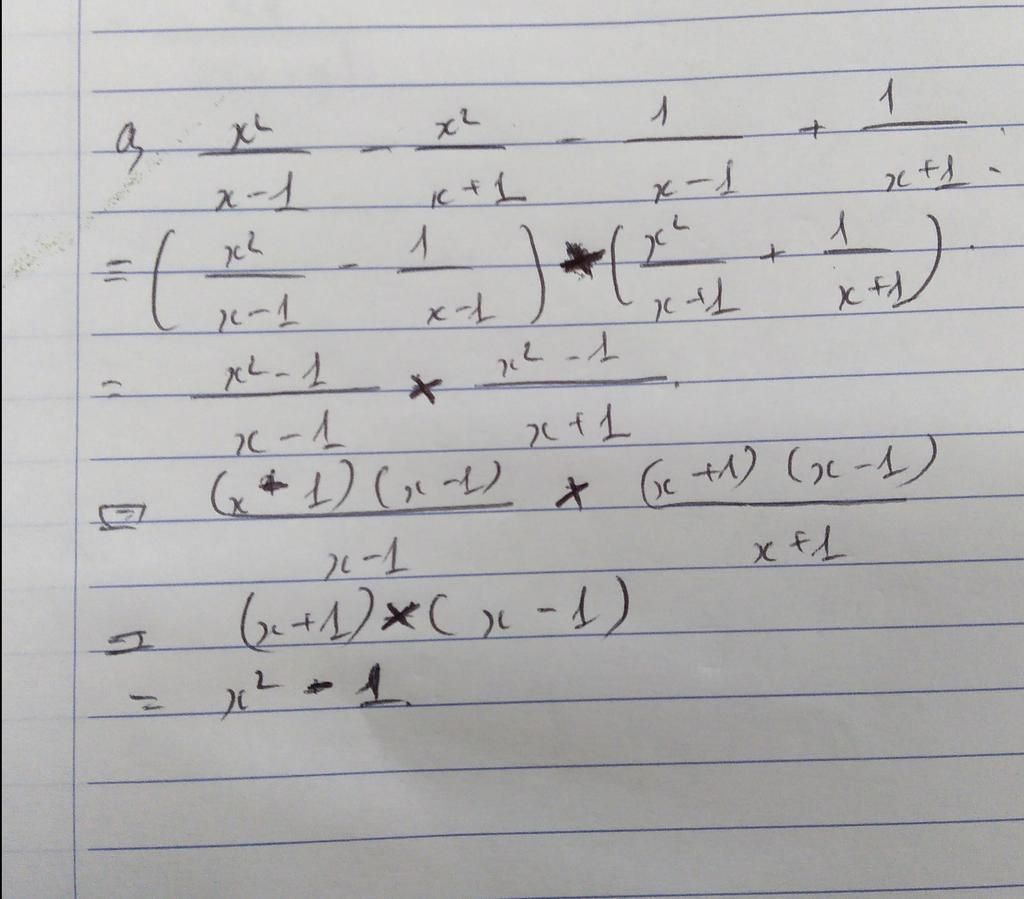 a, x²/(x-1) - x²/(x+1) - 1/(x-1) + 1/(x+1).
= (x²/(x-1) - 1/(x-1)) × (x²/(x+1) + 1/(x+1)).
= (x²-1)/(x-1) × (x²-1)/(x+1).
= (x+1)(x-1)/(x-1) × (x+1)(x-1)/(x+1)
= (x+1)×(x-1)
= x² - 1.